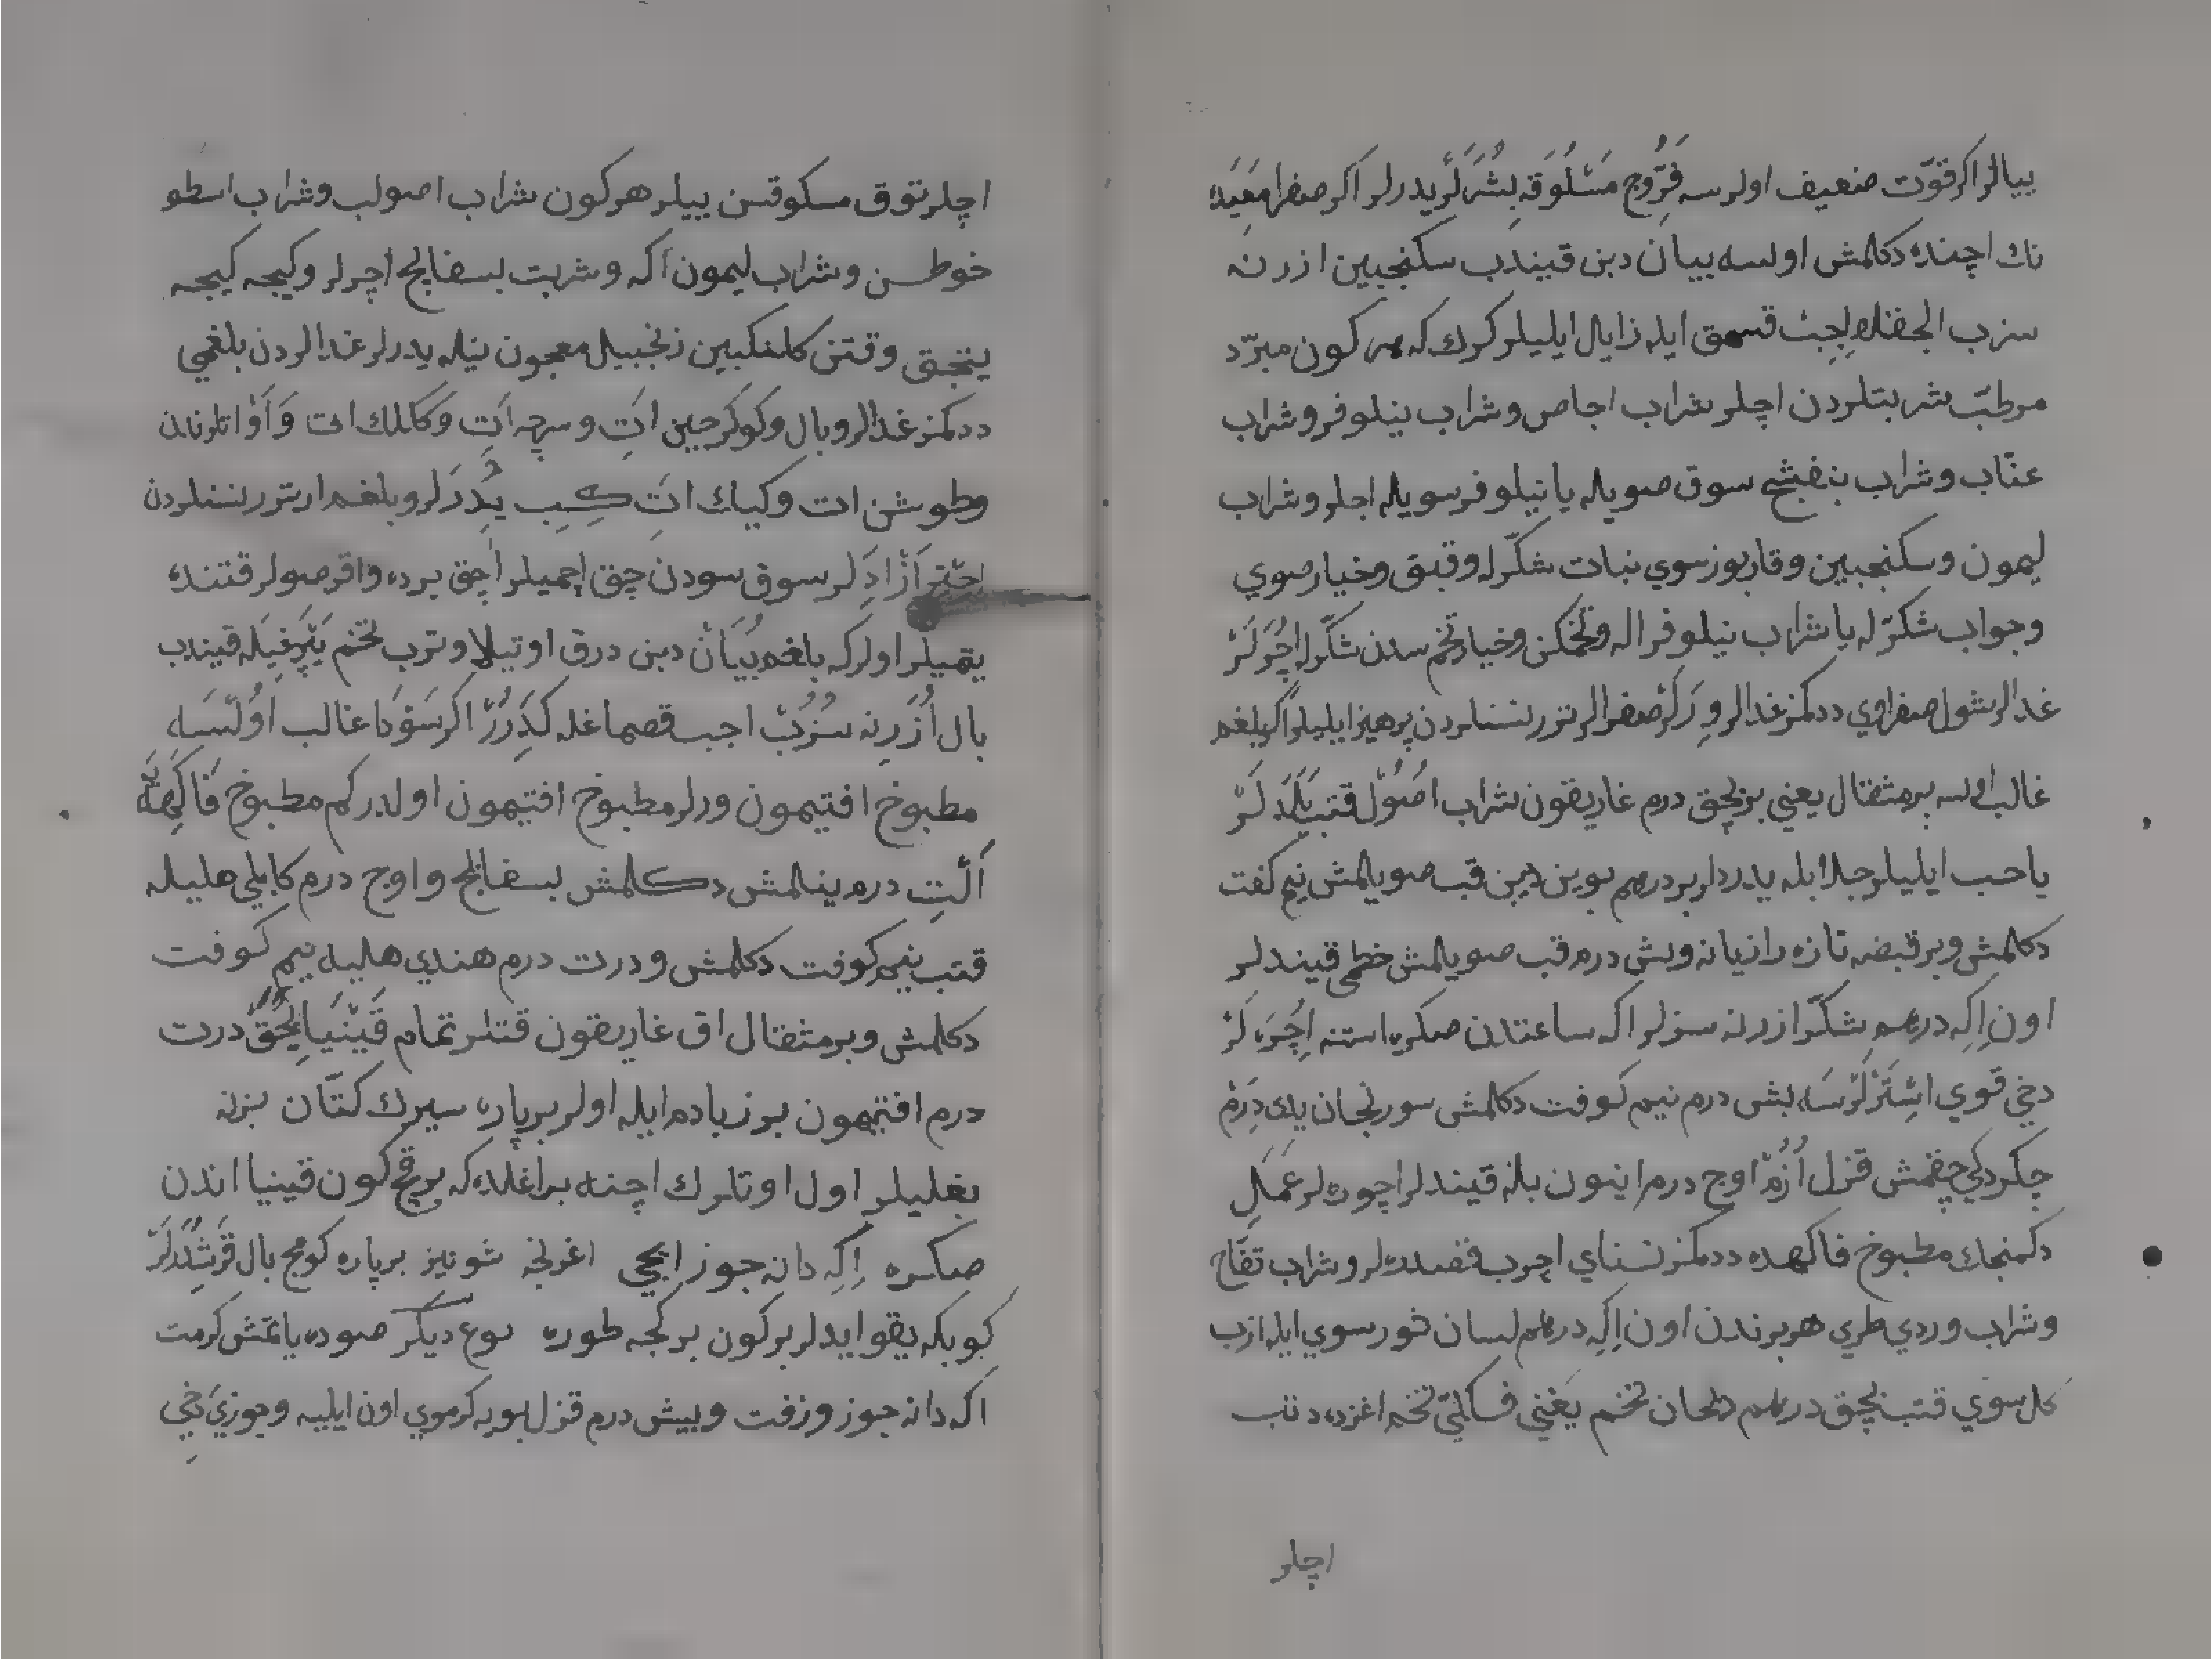 ييالر اكر قوّت ضعيف اولرسه فَرُّوج مَسْلُوقه بِشُرَلَر يدرلر اكر صفرا معَيَده
نك اچنده دكلمش اولسه بيان دبن قيندب سكنجبين ازرنه
سزب الجقله اچب قسمق ايله زايال ايليلر كرك كه هر كون مبرّد
مرطبّ شربتلردن اچلر شراب اجاص وشراب نيلوفر وشراب
عنّاب وشراب بنفشج سوق صويله يا نيلوفر سويله اجلر وشراب
ليمون وسكنجبين وقاربوز سوي نبات شكّرله وقبق وخيار صوي
وجواب شكرّله يا شراب نيلوفرا له وتخمكن وخيار تخم سدن شكّرله اچُرَلَرْ
غدالر شول صفراوي ددكمز غدالر ورلر صفرا ارترر نسنلردن پرهيز ايليلر اكر بلغم
غالب اولسه بر مثقال يعني بر بچق درم غاريقون شراب اصُول قتب يَلَدلَرْ
يا حب ايليلر جلا ابله يدردلر بر درهم بوين ديبن قب صويلمش نيم كفت
دكلمش وبر قبضه تازه رازيانه وبش درم قب صويلمش خطمى قيندلر
اون اِكِه درهم شكّر ازرنه سزلر اكه ساعتدن صكره استنه اِچُرَه لَرْ
دخي قوي اسْتَرْلَرْسَه بش درم نيم كوفت دكلمش سورنجان يدى دِرَمْ
چكردكي چقمش قزل اُزُمْ اوج درم اينون بله قيندلر اچوره لر عَمَلِ
دكمنجك مطبوخ فاكهده ددكمز نسناي اچرب فصدده لر وشراب تفّاح
وشراب وردي طري هر برندن اون اِكِه درهم لسان ثور سوي ايله ازب
كل سوي قتب بچق درهم دلحان تخم يَعْني فسلكن تخم اغزده دتب
اچلر
اچلر توق مسكوقسن ييلر هر كون شراب اصولب وشراب اسطو
خوطسن وشراب ليمون اكه وشربت بسفايج اچرلر وكيجه كيجه
يتجق وقتن كلنكبين زنجبيل معجون نيله يدرلر غدالردن بلغمي
ددكمز غدالر وبال وكوكرجين اتِ وسرچه اتِ وكللك ات وَاَوْ اتلرندن
وطوشن ات وكيك اتِ كِسِب يِدُرَلر وبلغم ارترر نسنلردن
احتراز ادَلر سوق سودن چق اچميلر اچق يرده واقر صولر قتنده
يتميلر اولركه بلغم بُيَانْ دبن درق اوتيلا وترب تخم يَپْرَغِيَله قيندب
بال اُزَرِنه سُزُبْ اجب قصماغله كدَرُرْ اكر سَوْدَا غالب اوُلْسَه
مطبوخ افتيمون ورلر مطبوخ افتيمون اولدر كم مطبوخ فَاكَهَيه
اَلْتِ درم ينلمش دكلمش بسفايج واوج درم كابلي هليله
قتب نيم كوفت دكلمش ودرت درم هندي هليله نيم كوفت
دكلمش وبر مثقال اق غاريقون قتلر تمام قَيْنَيَايُجَقْ درت
درم افتيمون بو زيادم ايله اولر بر پاره سيرك كتّان بزنه
بغليلر اول اوتلرك اچنه براغلده كه بر قچ كون قينيا اندن
صكره اِكِه دانه جوز ايچي اغرلنجه شونيز بر پاره كومج بال قرَشْدُرلَرْ
كوبكه يقو ايدلر بر كون بر كجه طوره نوع ديكر صوده ياتمش كرمت
اكه دانه جوز وزفت وبيش درم قزل بويه كرموي اون ايليه وجوزي دخي